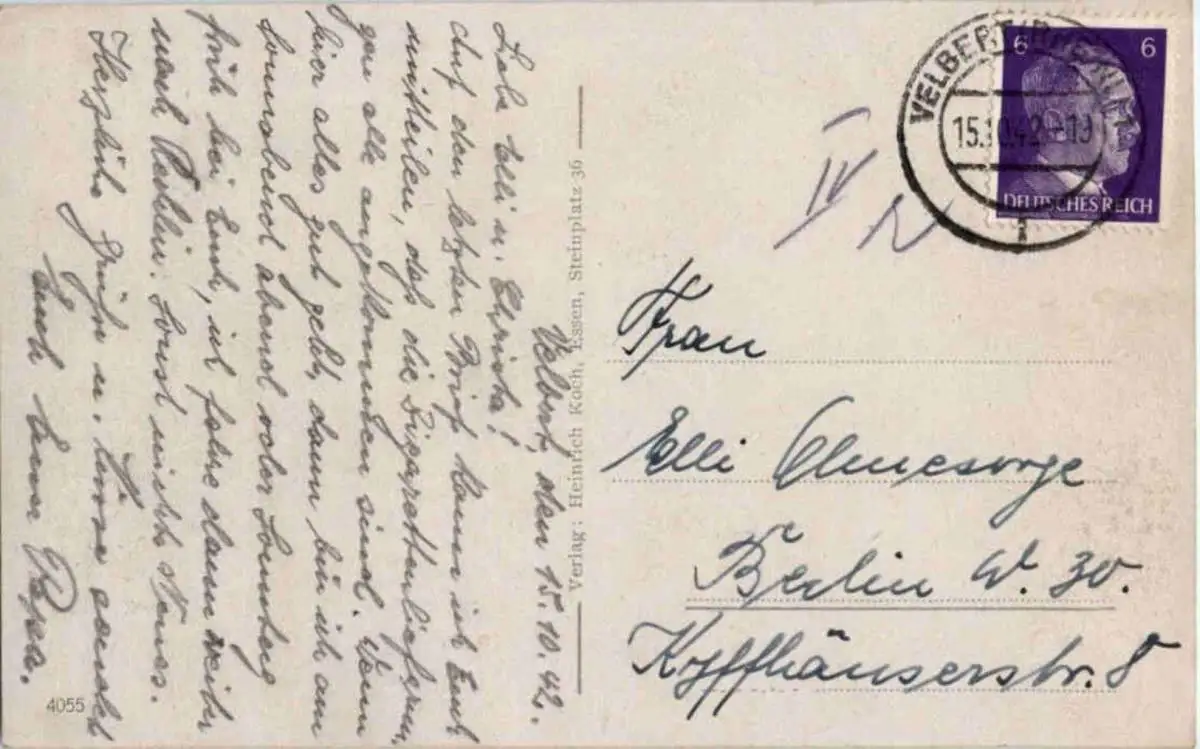 Velbert, den 15.10.42.
Liebe Elli u. Christa!
Auf den letzten Brief kann ich Euch
mitteilen, daß die Zigarettenlieferun
gen alle angekommen sind. Wenn
hier alles gut geht, dann bin ich am
Sonnabend abend oder Sonntag
früh bei Euch, ich fahre dann weiter
nach Berlin. Sonst nichts Neues.
Herzliche Grüße u. Küsse sendet
Euch Euer Papa.
4055
Verlag: Heinrich Koch, Essen, Steinplatz 36
VELBERT
15.10.42-19
1
6
6
DEUTSCHES REICH
IV
Frau
Elli Ohnesorge
Berlin W. 30.
Kyffhäuserstr. 8